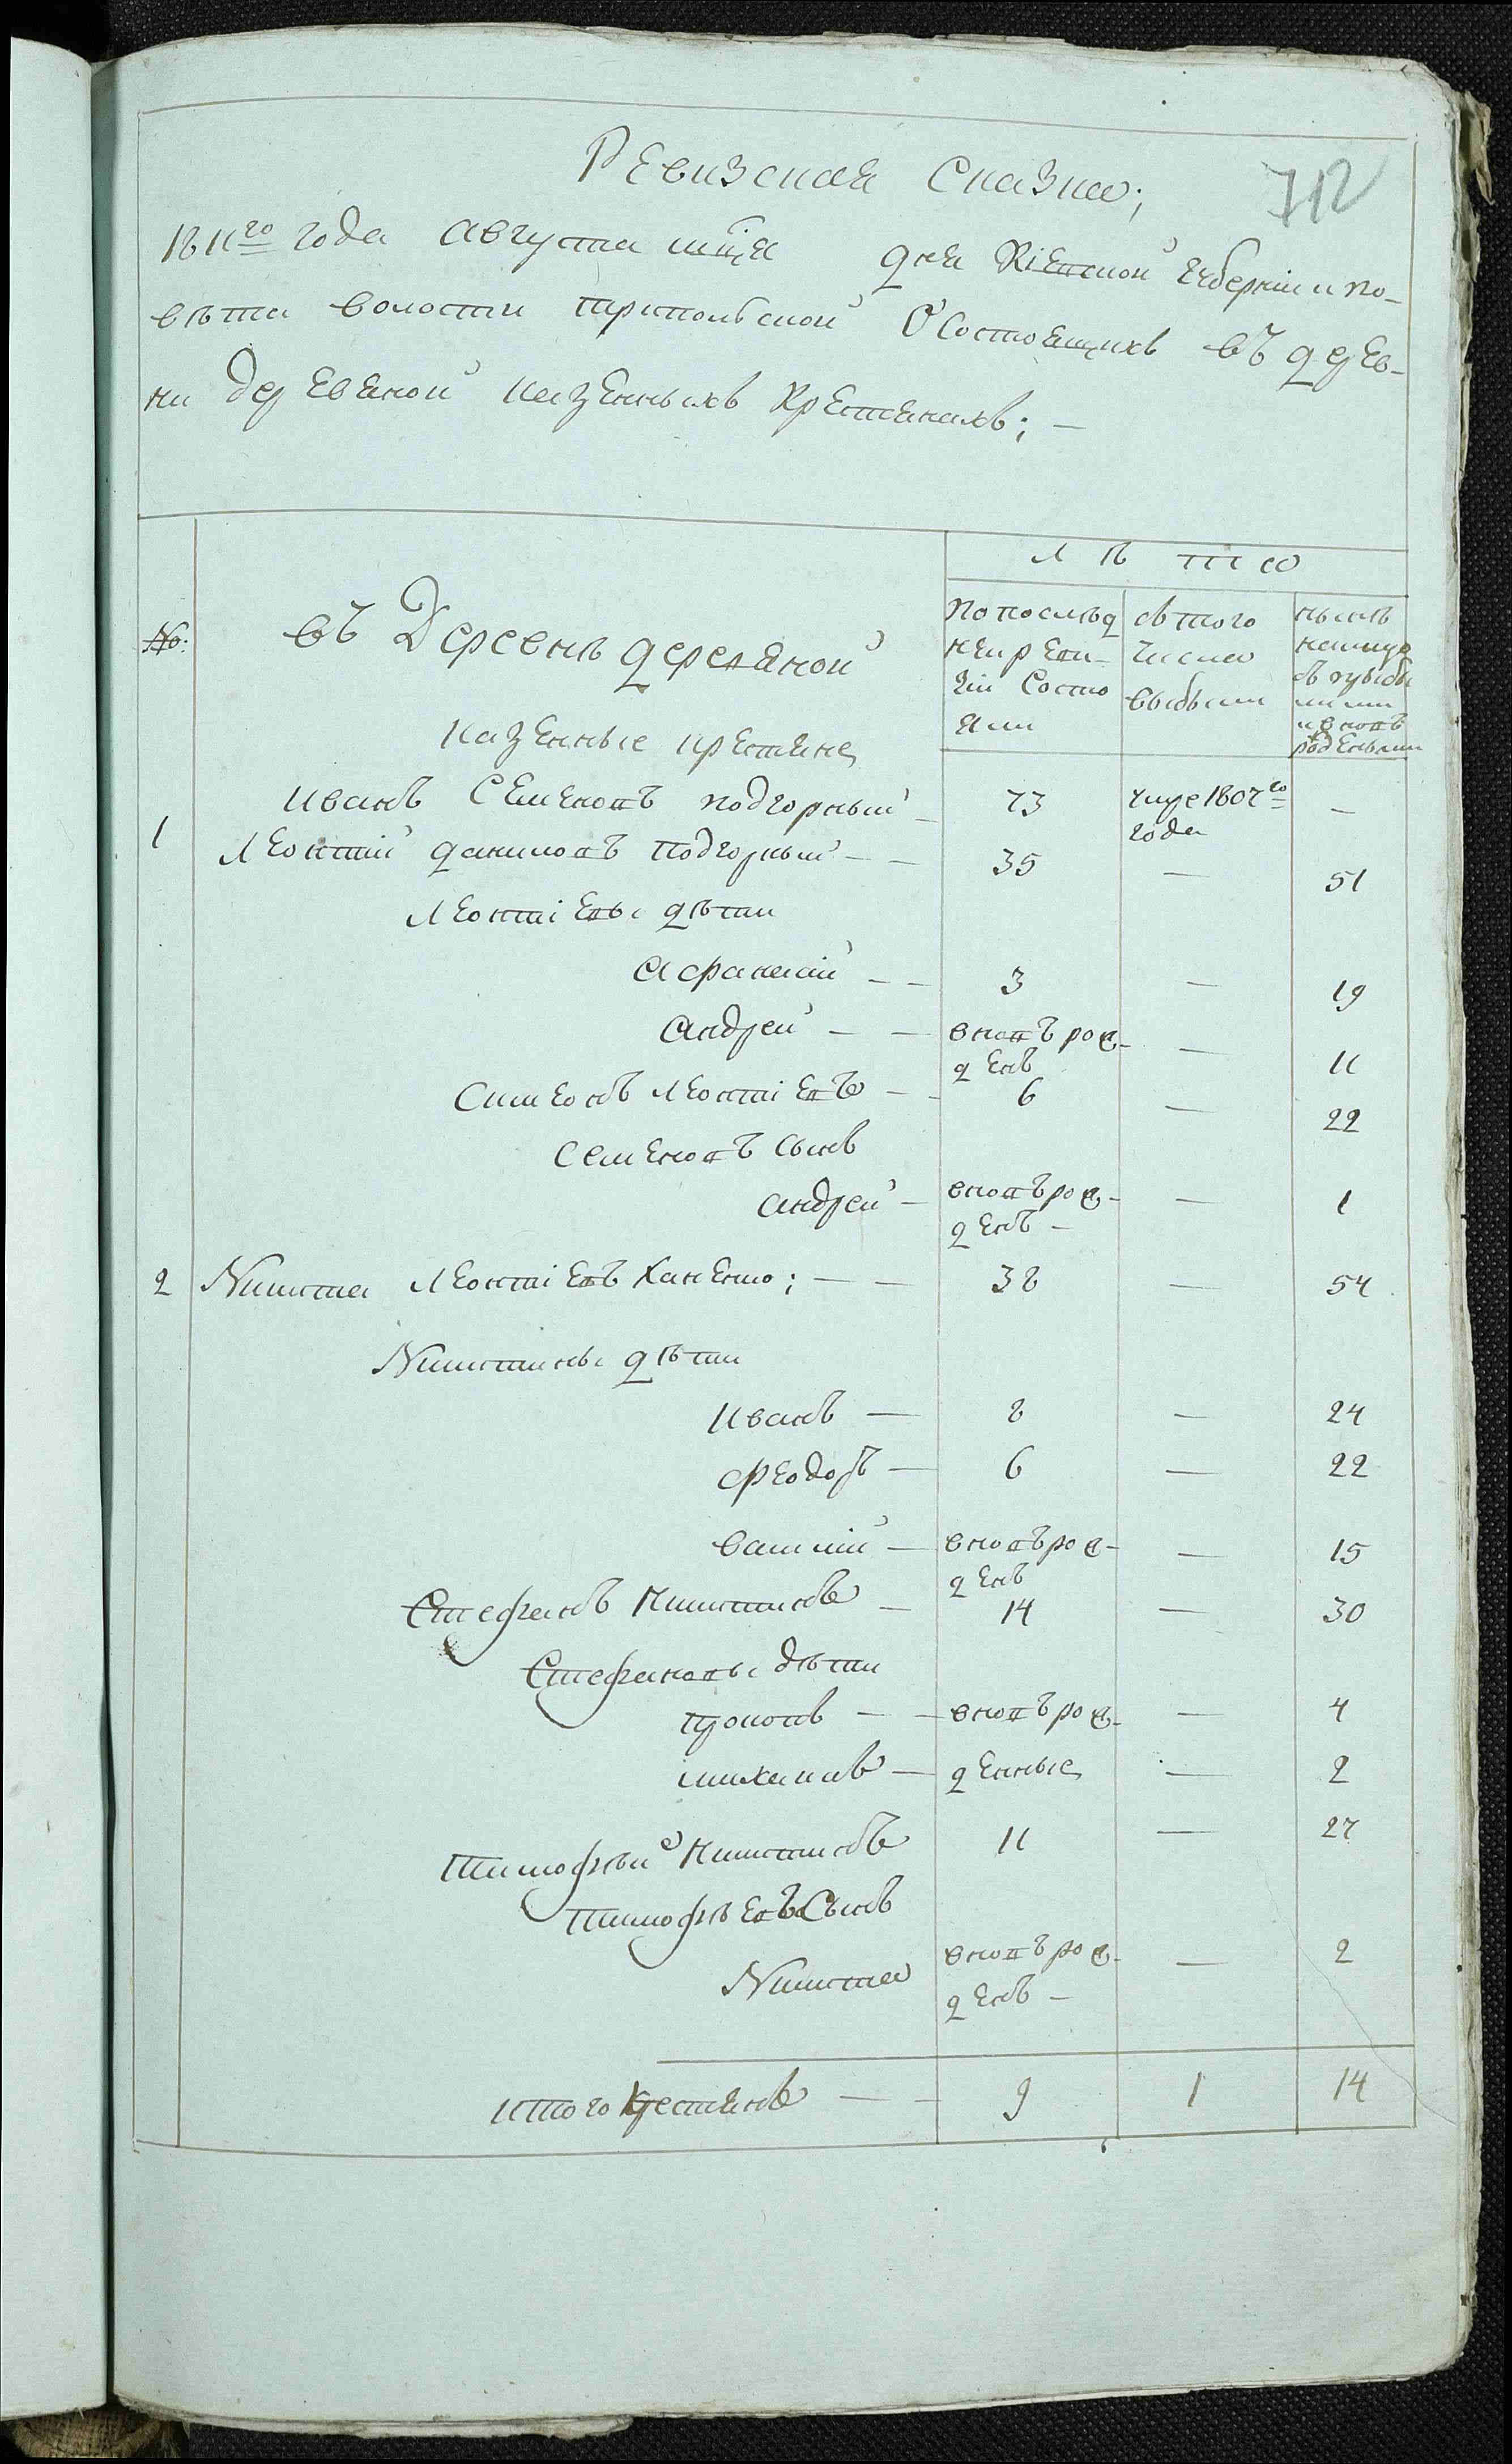 Ревизская Сказка;
712
1811го года августа мца дня Кіевской губерніи и по-
вѣта волости трипольской О Состоящихъ въ дерев-
ни деревяной казенныхъ крестянахъ; —
№:
въ Деревнѣ деревяной
казенные крестяне
Л ѣ т а
по послѣд
ней реви-
зіи Состо
яли
съ того
числа
выбыли
нынѣ
на лицо
съ прибы
лими
и вновь
рожденными
1 Иванъ Семеновъ подгорный — 73 умре 1807го года —
Леонтій даниловъ подгорный — — 35 — 51
Леонтіевы дѣти
Афанасій — — 3 — 19
Андрей — — вновъ рож-
денъ — 11
Симеонъ Леонтіевъ — — 6 — 22
Семеновъ сынъ
андрей — вновъ рож-
денъ — — 1
2 Никита Леонтіевъ Ханенко; — — 38 — 54
Никитины дѣти
Иванъ — 8 — 24
Феодоръ — 6 — 22
василій — вновъ рож-
денъ — 15
Стефанъ Никитинъ — 14 — 30
Стефановы дѣти
прокопъ — — вновъ рож- — 4
михаилъ — денные — 2
Тимофѣй Никитинъ 11 — 27
тимофѣевъ Сынъ
Никита вновъ рож-
денъ — — 2
итого крестянъ — — 9 1 14